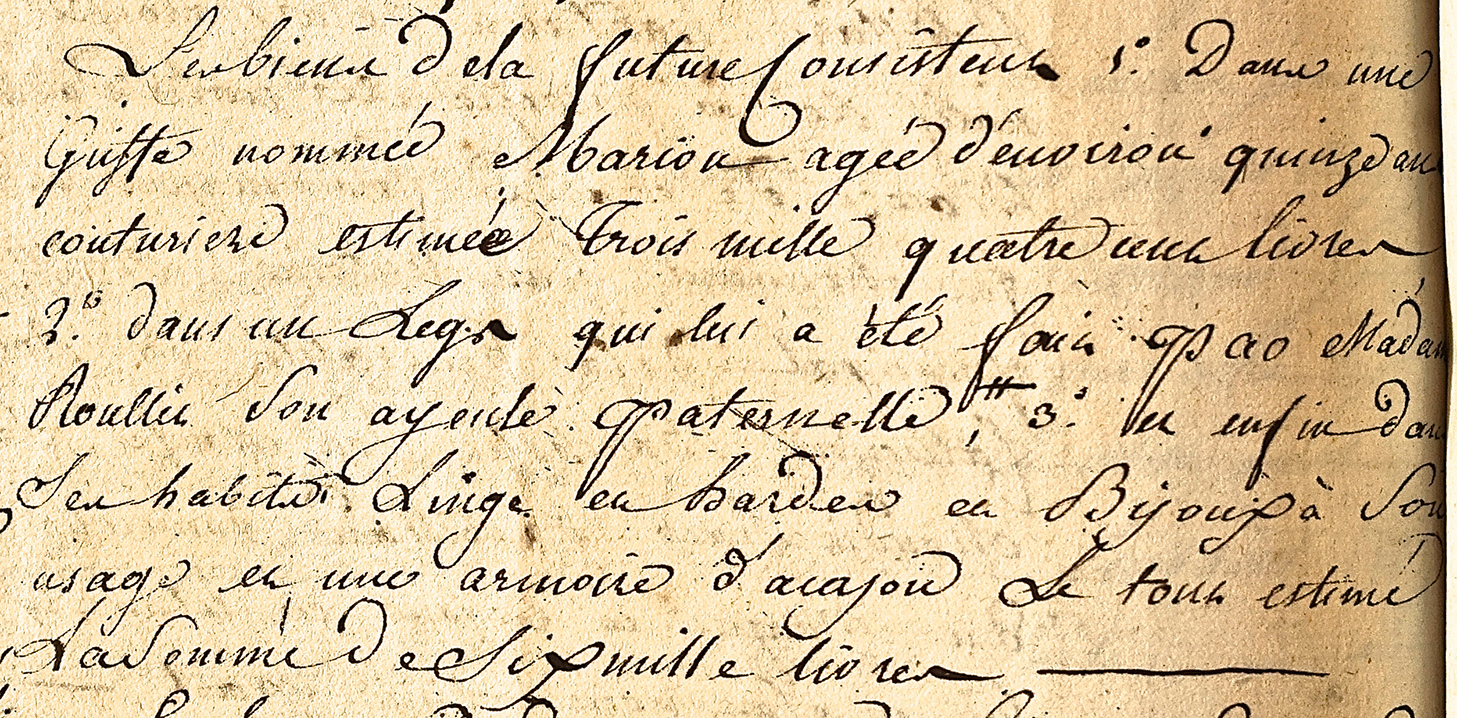 Les biens de la future Consistent 1° Dans une
Griffe nommée Marion agée d'environ quinze ans
couturiere estimée Trois mille quatre cent livres
2° dans un Legs qui lui a été fait par Madam
Roullié Son ayeule paternelle, 3° et enfin dans
Ses habits Linge et hardes et Bijoux à Son
usage et une armoire d'acajou Le tout estimé
La Somme de Six mille livres